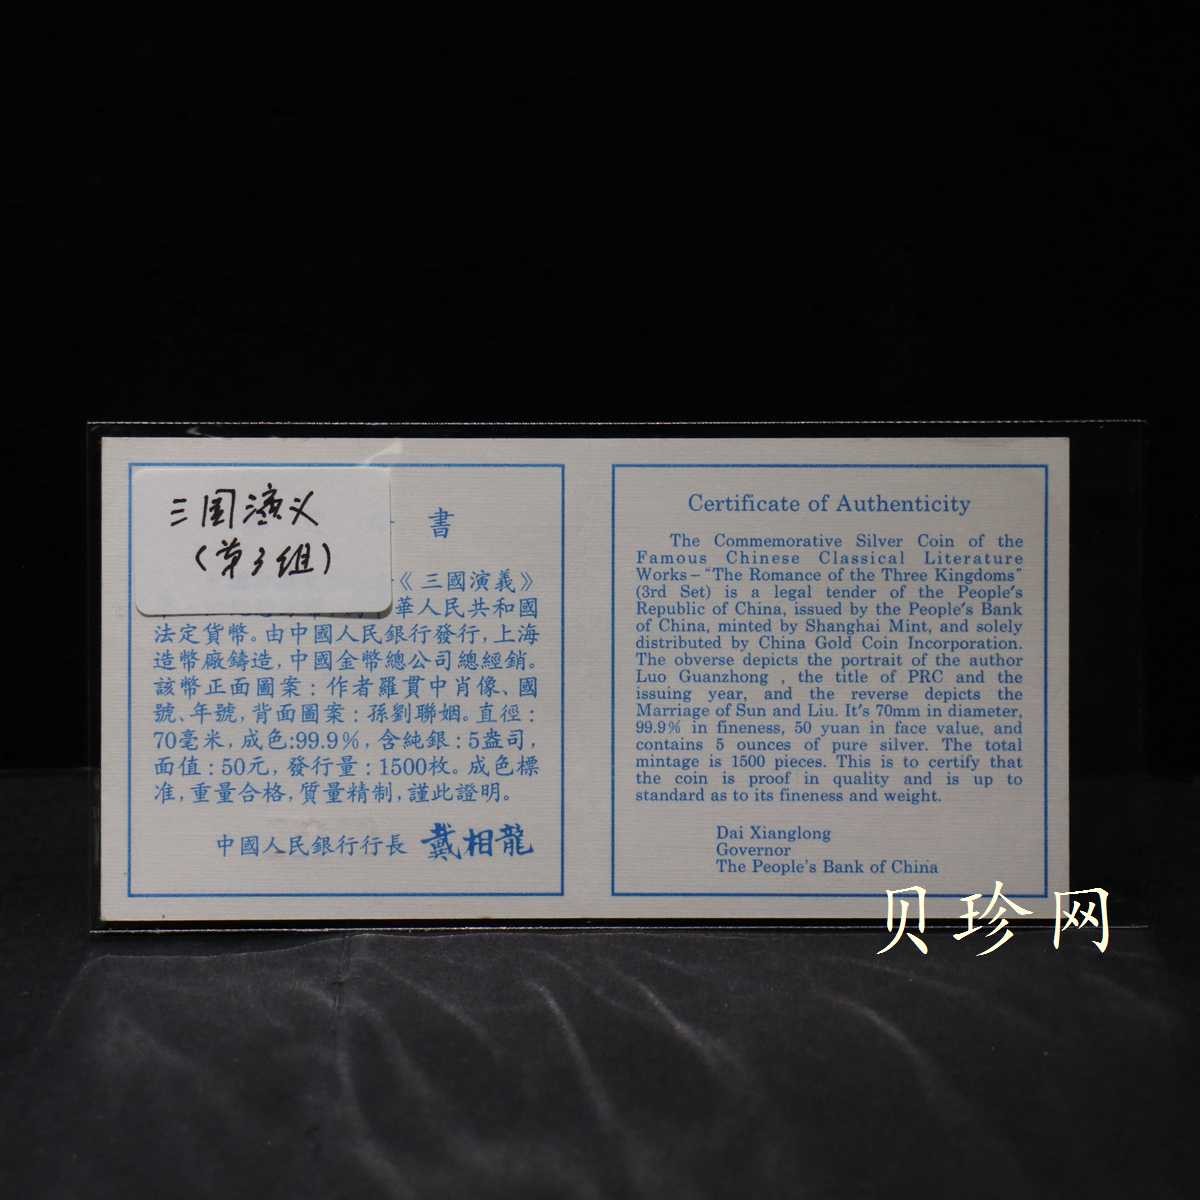 三国演义
（第3组）
書
《三國演義》
華人民共和國
法定貨幣。由中國人民銀行發行，上海
造幣廠鑄造，中國金幣總公司總經銷。
該幣正面圖案：作者羅貫中肖像、國
號、年號，背面圖案：孫劉聯姻。直徑：
70毫米，成色:99.9%，含純銀：5盎司，
面值：50元，發行量：1500枚。成色標
准，重量合格，質量精制，謹此證明。
中國人民銀行行長 戴相龍
Certificate of Authenticity
The Commemorative Silver Coin of the
Famous Chinese Classical Literature
Works—"The Romance of the Three Kingdoms"
(3rd Set) is a legal tender of the People's
Republic of China, issued by the People's Bank
of China, minted by Shanghai Mint, and solely
distributed by China Gold Coin Incorporation.
The obverse depicts the portrait of the author
Luo Guanzhong , the title of PRC and the
issuing year, and the reverse depicts the
Marriage of Sun and Liu. It's 70mm in diameter,
99.9% in fineness, 50 yuan in face value, and
contains 5 ounces of pure silver. The total
mintage is 1500 pieces. This is to certify that
the coin is proof in quality and is up to
standard as to its fineness and weight.
Dai Xianglong
Governor
The People's Bank of China
贝珍网